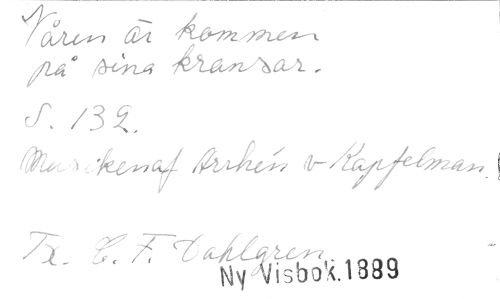 Våren är kommen
på sina kransar.
S. 132.
Musiken af Arrhén v Kapfelman
Tx. C. F. Dahlgren.
Ny Visbok.1889